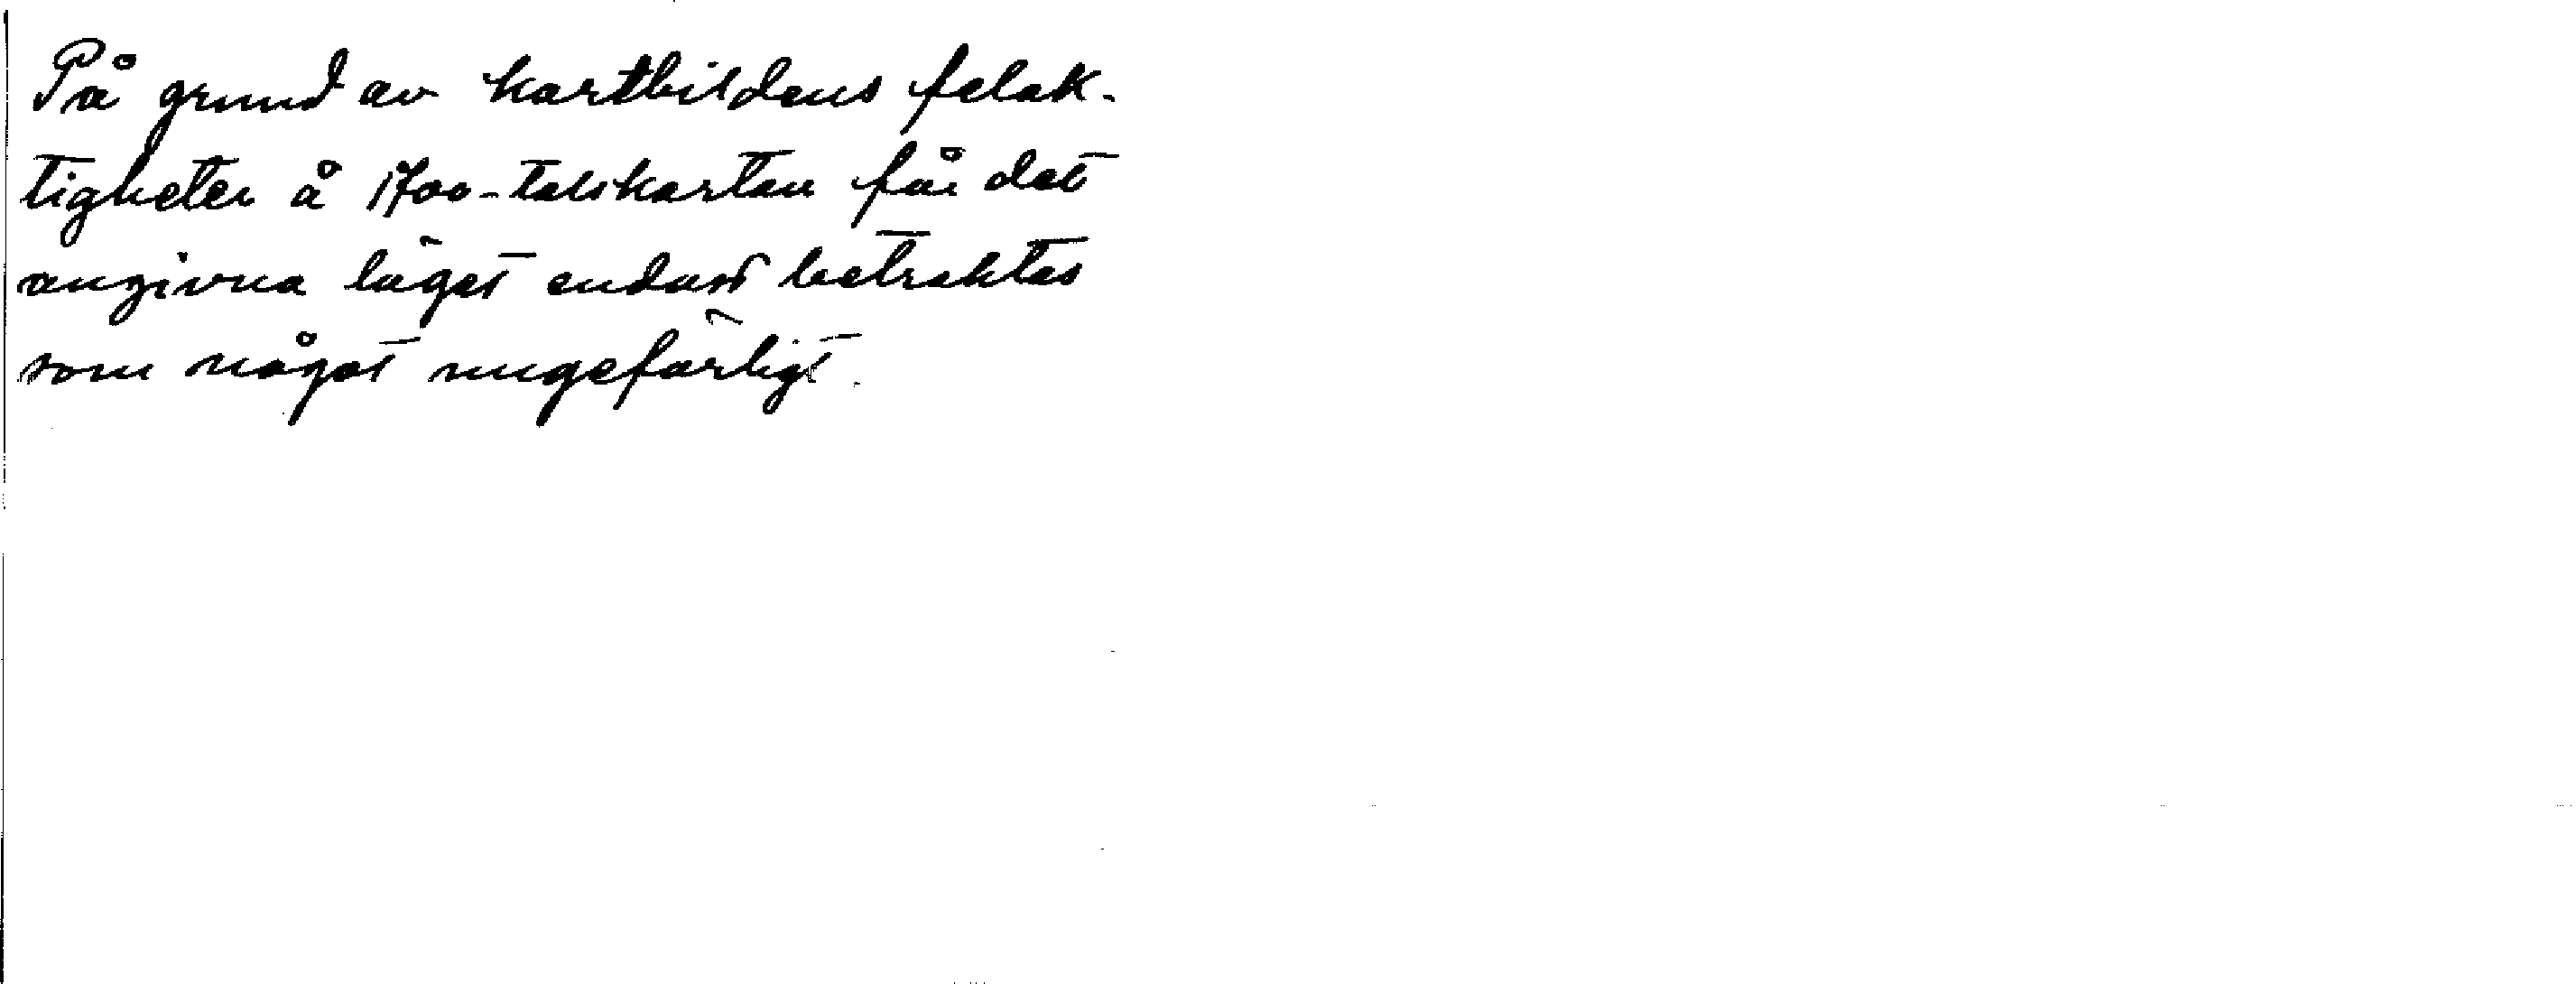 På grund av kartbildens felak-
tigheter å 1700-talskartan får det
angivna läget endast betraktas
som något ungefärligt.